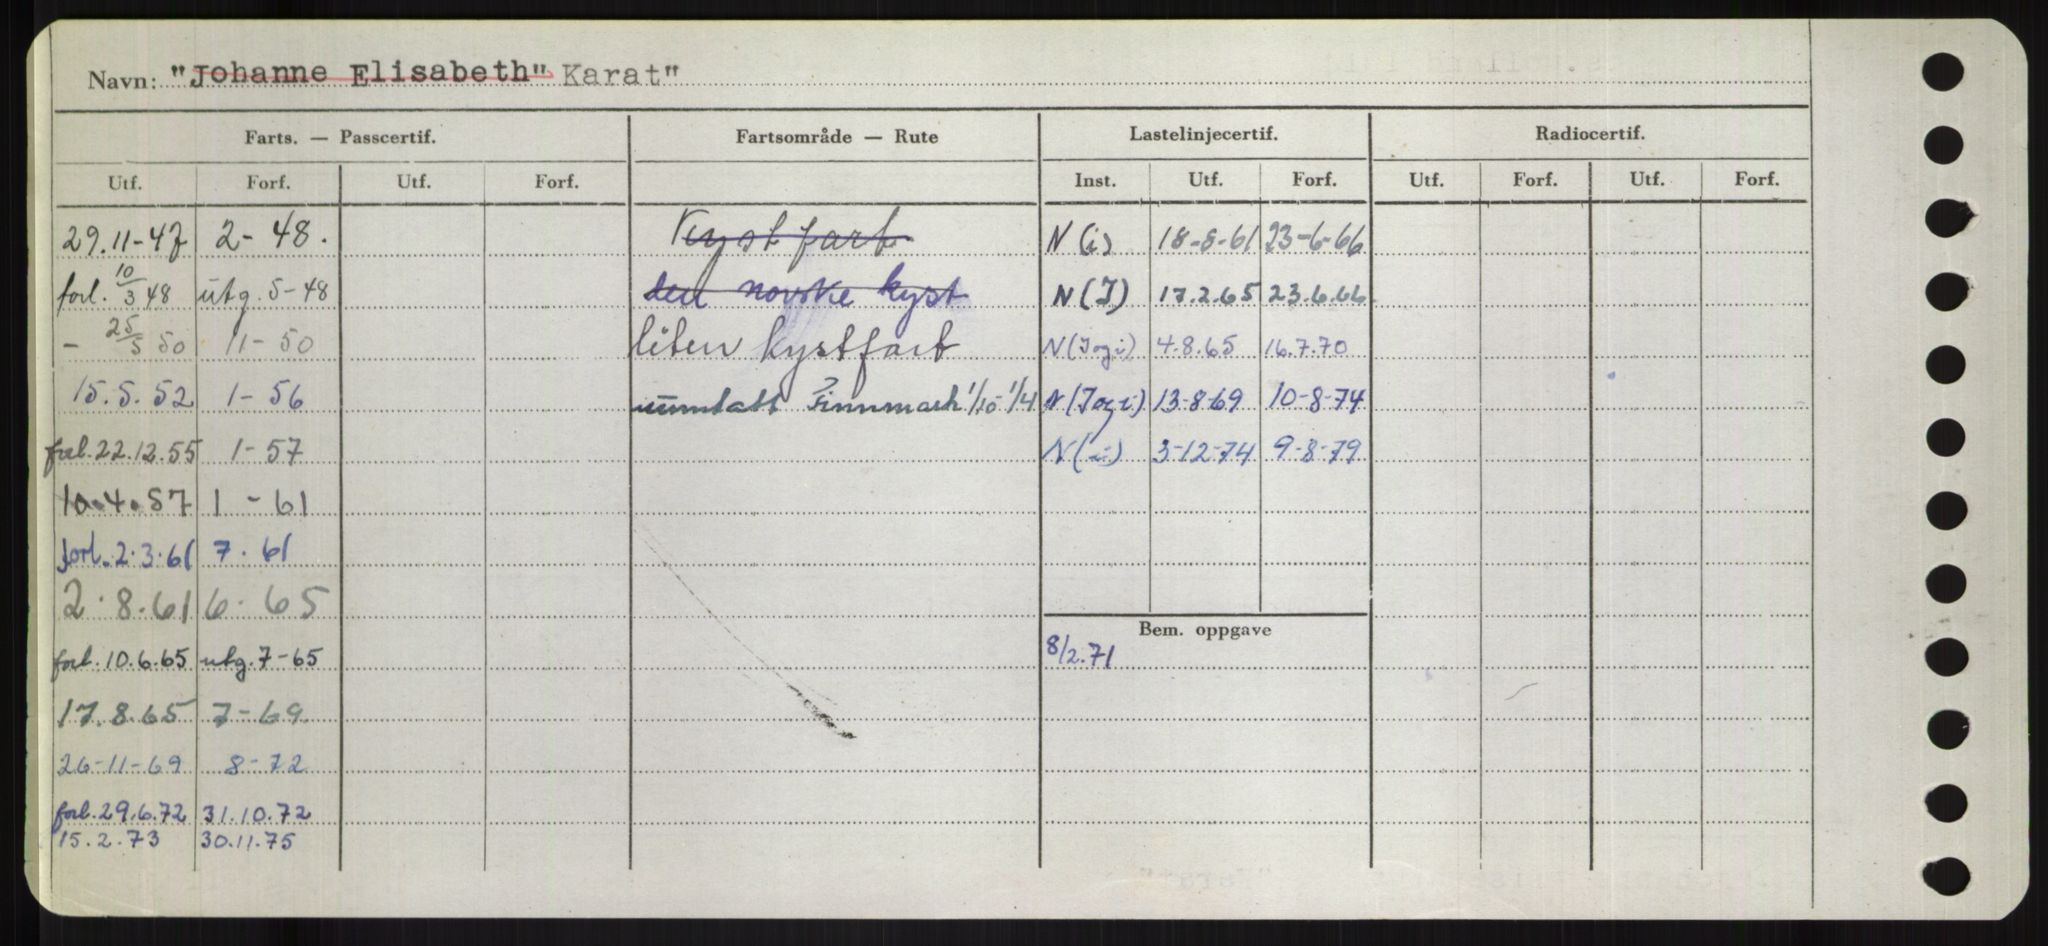 Navn: "Johanne Elisabeth" Karat"
Farts. — Passcertif. Fartsområde — Rute Lastelinjecertif. Radiocertif.
Utf. Forf. Utf. Forf. Inst. Utf. Forf. Utf. Forf. Utf. Forf.
29.11-47 2-48. Kystfart N(i) 18-8-61 23-6-66
forl. 10/3 48 utg. 5-48 den norske kyst N(I) 17.2.65 23.6.66
- 25/5 50 11-50 liten kystfart N(Iogi) 4.8.65 16.7.70
15.5.52 1-56 unntatt Finnmark 1/10-1/4 N(Iogi) 13-8-69 10-8-74
forl. 22.12.55 1-57 N(i) 3-12-74 9-8-79
10.4.57 1-61
forl. 2.3.61 7.61
2.8.61 6.65
Bem. oppgave
forl. 10.6.65 utg. 7-65 8/2.71
17.8.65 7-69
26-11-69 8-72
forl. 29.6.72 31.10.72
15.2.73 30.11.75